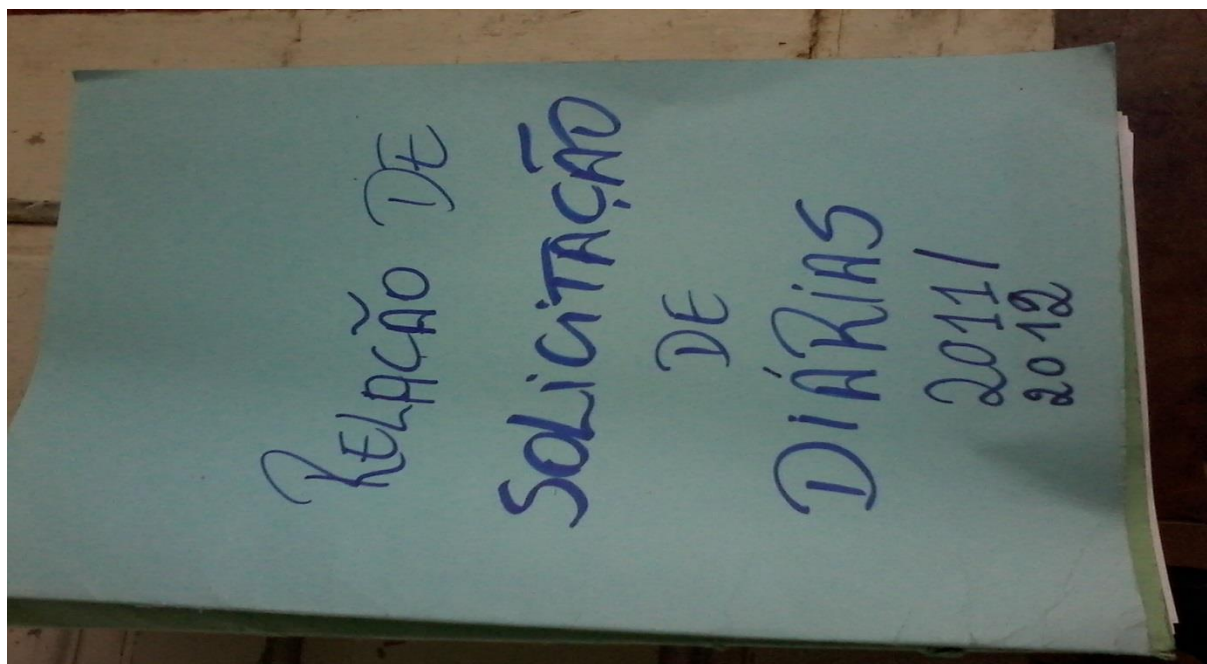 RELAÇÃO DE
SOLICITAÇÃO
DE
DIÁRIAS
2011/
2012